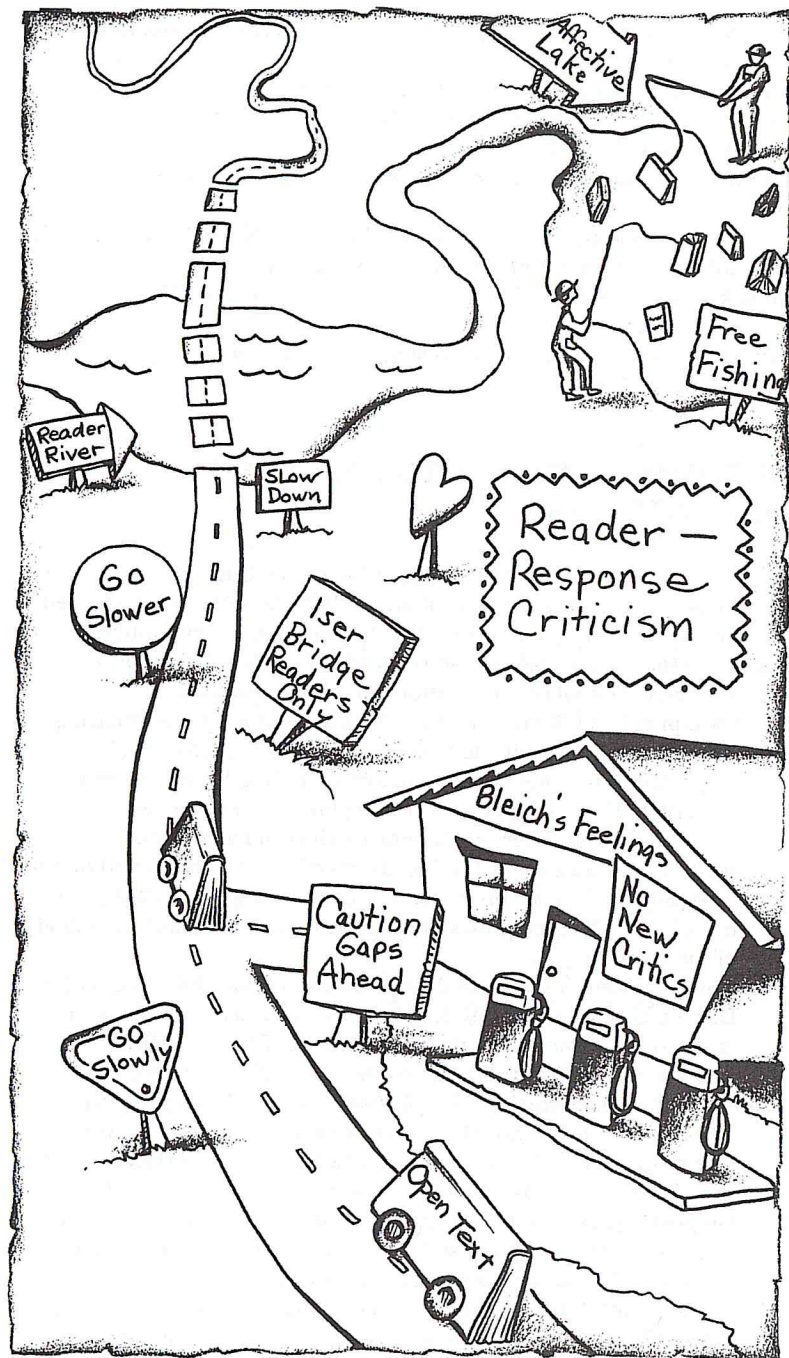 Affective
Lake
Free
Fishing
Reader
River
SLOW
Down
Reader —
Response
Criticism
Go
Slower
Iser
Bridge
Readers
Only
Bleich's Feelings
No
New
Critics
Caution
Gaps
Ahead
GO
Slowly
Open Text